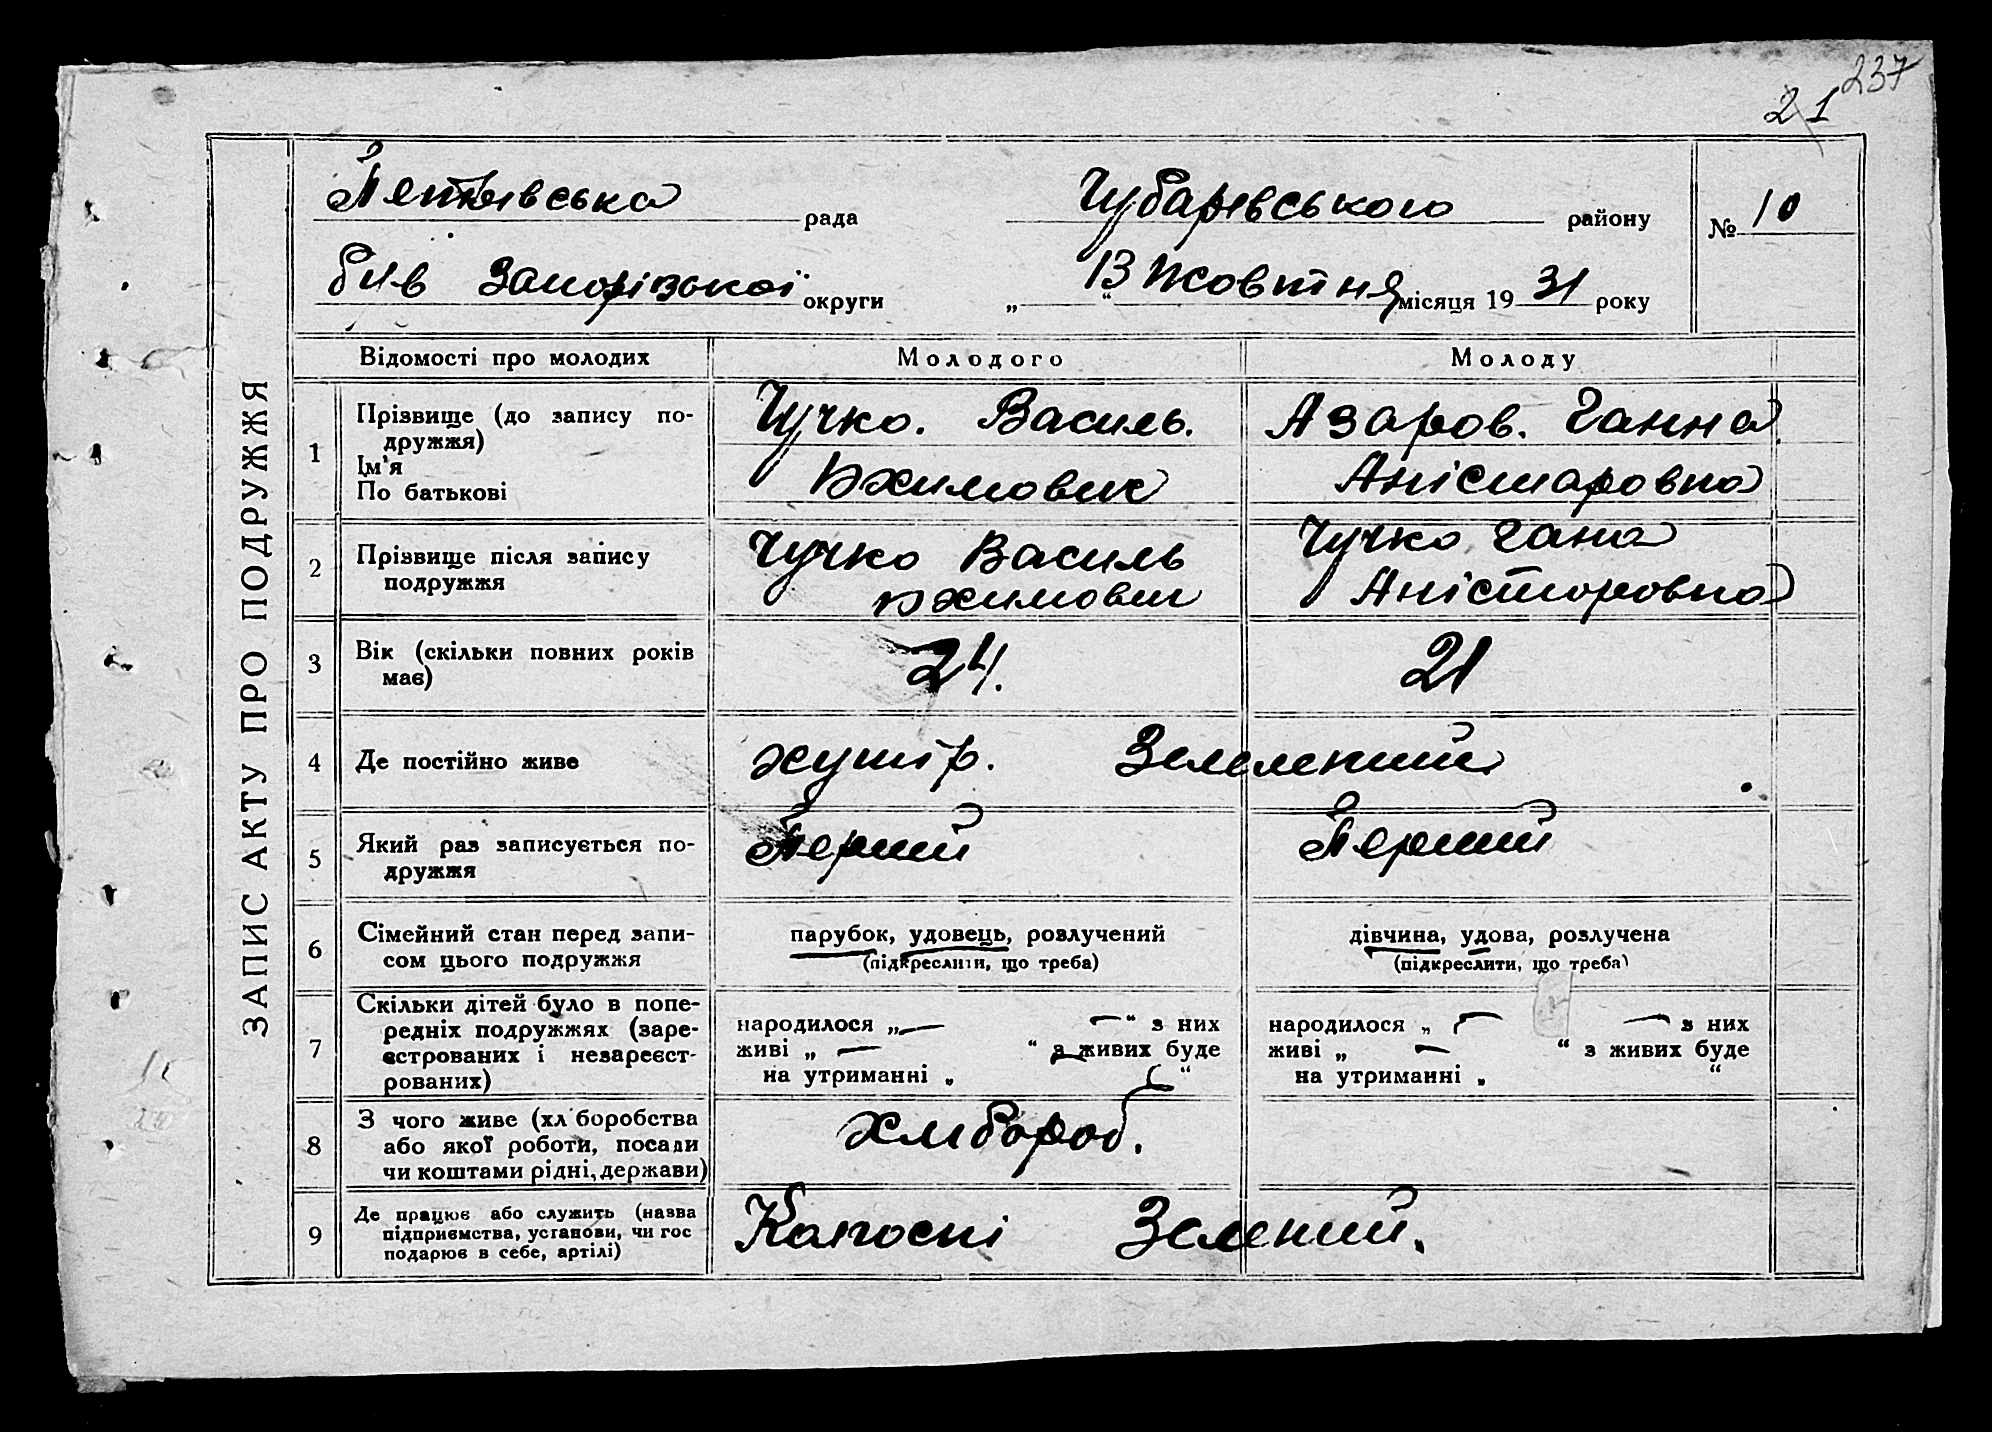 237
21
ЗАПИС АКТУ ПРО ПОДРУЖЖЯ
рада
Чубарівського району
№ 10
був Запорізької округи
„ 13 “ Жовтня місяця 19 31 року
Відомості про молодих
Молодого
Молоду
1
Прізвище (до запису по-
дружжя)
Ім'я
По батькові
Чучко. Василь.
Юхимович
Азаров. Ганна
Аністоровна
2
Прізвище після запису
подружжя
Чучко Василь
Юхимович
Чучко Гана
Аністоровна
3
Вік (скільки повних років
має)
24.
21
4
Де постійно живе
хутір.
5
Який раз записується по-
дружжя
Перший
Перший
6
Сімейний стан перед запи-
сом цього подружжя
парубок, удовець, розлучений
(підкреслити, що треба)
дівчина, удова, розлучена
(підкреслити, що треба)
7
Скільки дітей було в попе-
редніх подружжях (заре-
єстрованих і незареєст-
рованих)
народилося „— —“ з них
живі „ — “ з живих буде
на утриманні „ “
народилося „ — — з них
живі „ — “ з живих буде
на утриманні „ “
8
З чого живе (хліборобства
або якої роботи, посади
чи коштами рідні, держави)
хлібороб.
9
Де працює або служить (назва
підприємства, установи, чи гос
подарює в себе, артілі)
Зелений.